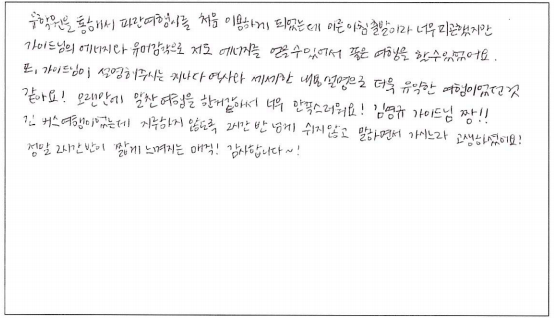 유학원을 통해서 파란여행사를 처음 이용하게 되었는데 이른아침 출발이라 너무 피곤했지만
가이드님의 에너지와 유머감각으로 저도 에너지를 얻을수있어서 좋은 여행을 할수있었어요.
또, 가이드님이 설명해주시는 지나다 역사와 세세한 내용 설명으로 더욱 유익한 여행이었던것
같아요! 오랜만에 알찬여행을 한거같아서 너무 만족스러워요! 김명규 가이드님 짱!!
긴 버스여행이었는데 지루하지 않도록 2시간 반 넘게 쉬지않고 말하면서 가시느라 고생하셨어요!
정말 2시간반이 짧게 느껴지는 매직! 감사합니다~!